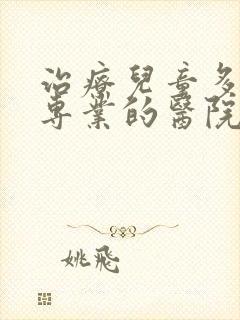 治療兒童多
專業的醫院
姚飛